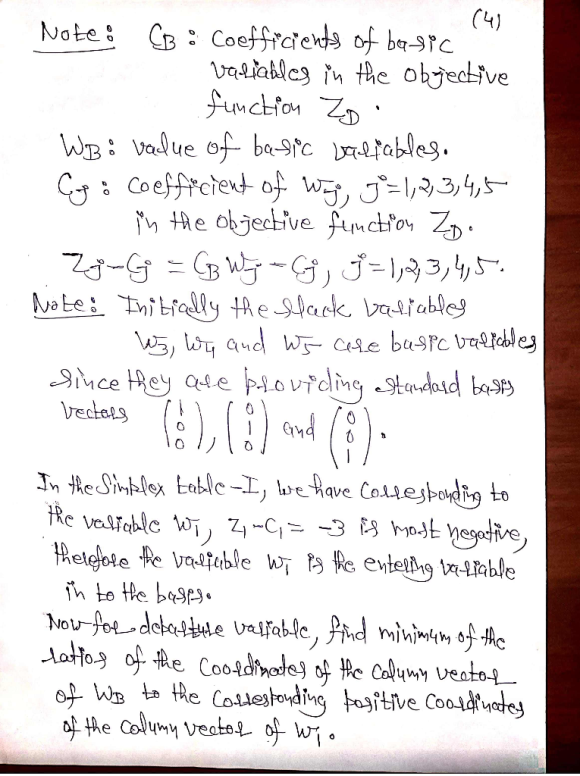 (4)
Note: C_B : Coefficients of basic
variables in the objective
function Z_D.
W_B : value of basic variables.
C_j : coefficient of W_j, j=1,2,3,4,5
in the objective function Z_D.
Z_j-C_j = C_B W_j - C_j, j=1,2,3,4,5.
Note: Initially the slack variables
W_3, W_4 and W_5 are basic variables
since they are providing standard basis
vectors (1 0 0), (0 1 0) and (0 0 1).
In the Simplex table-I, we have corresponding to
the variable W_1, Z_1-C_1 = -3 is most negative,
therefore the variable W_1 is the entering variable
in to the bases.
Now for departure variable, find minimum of the
ratios of the coordinates of the column vector
of W_B to the corresponding positive coordinates
of the column vector of W_1.